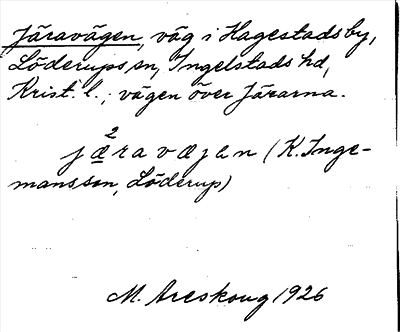 Järavägen, väg i Hagestads by,
Löderups sn, Ingelstads hd,
Krist. l.; vägen över Järarna.
2
jæravæjan (K. Inge-
mansson, Löderup)
M. Areskoug 1926